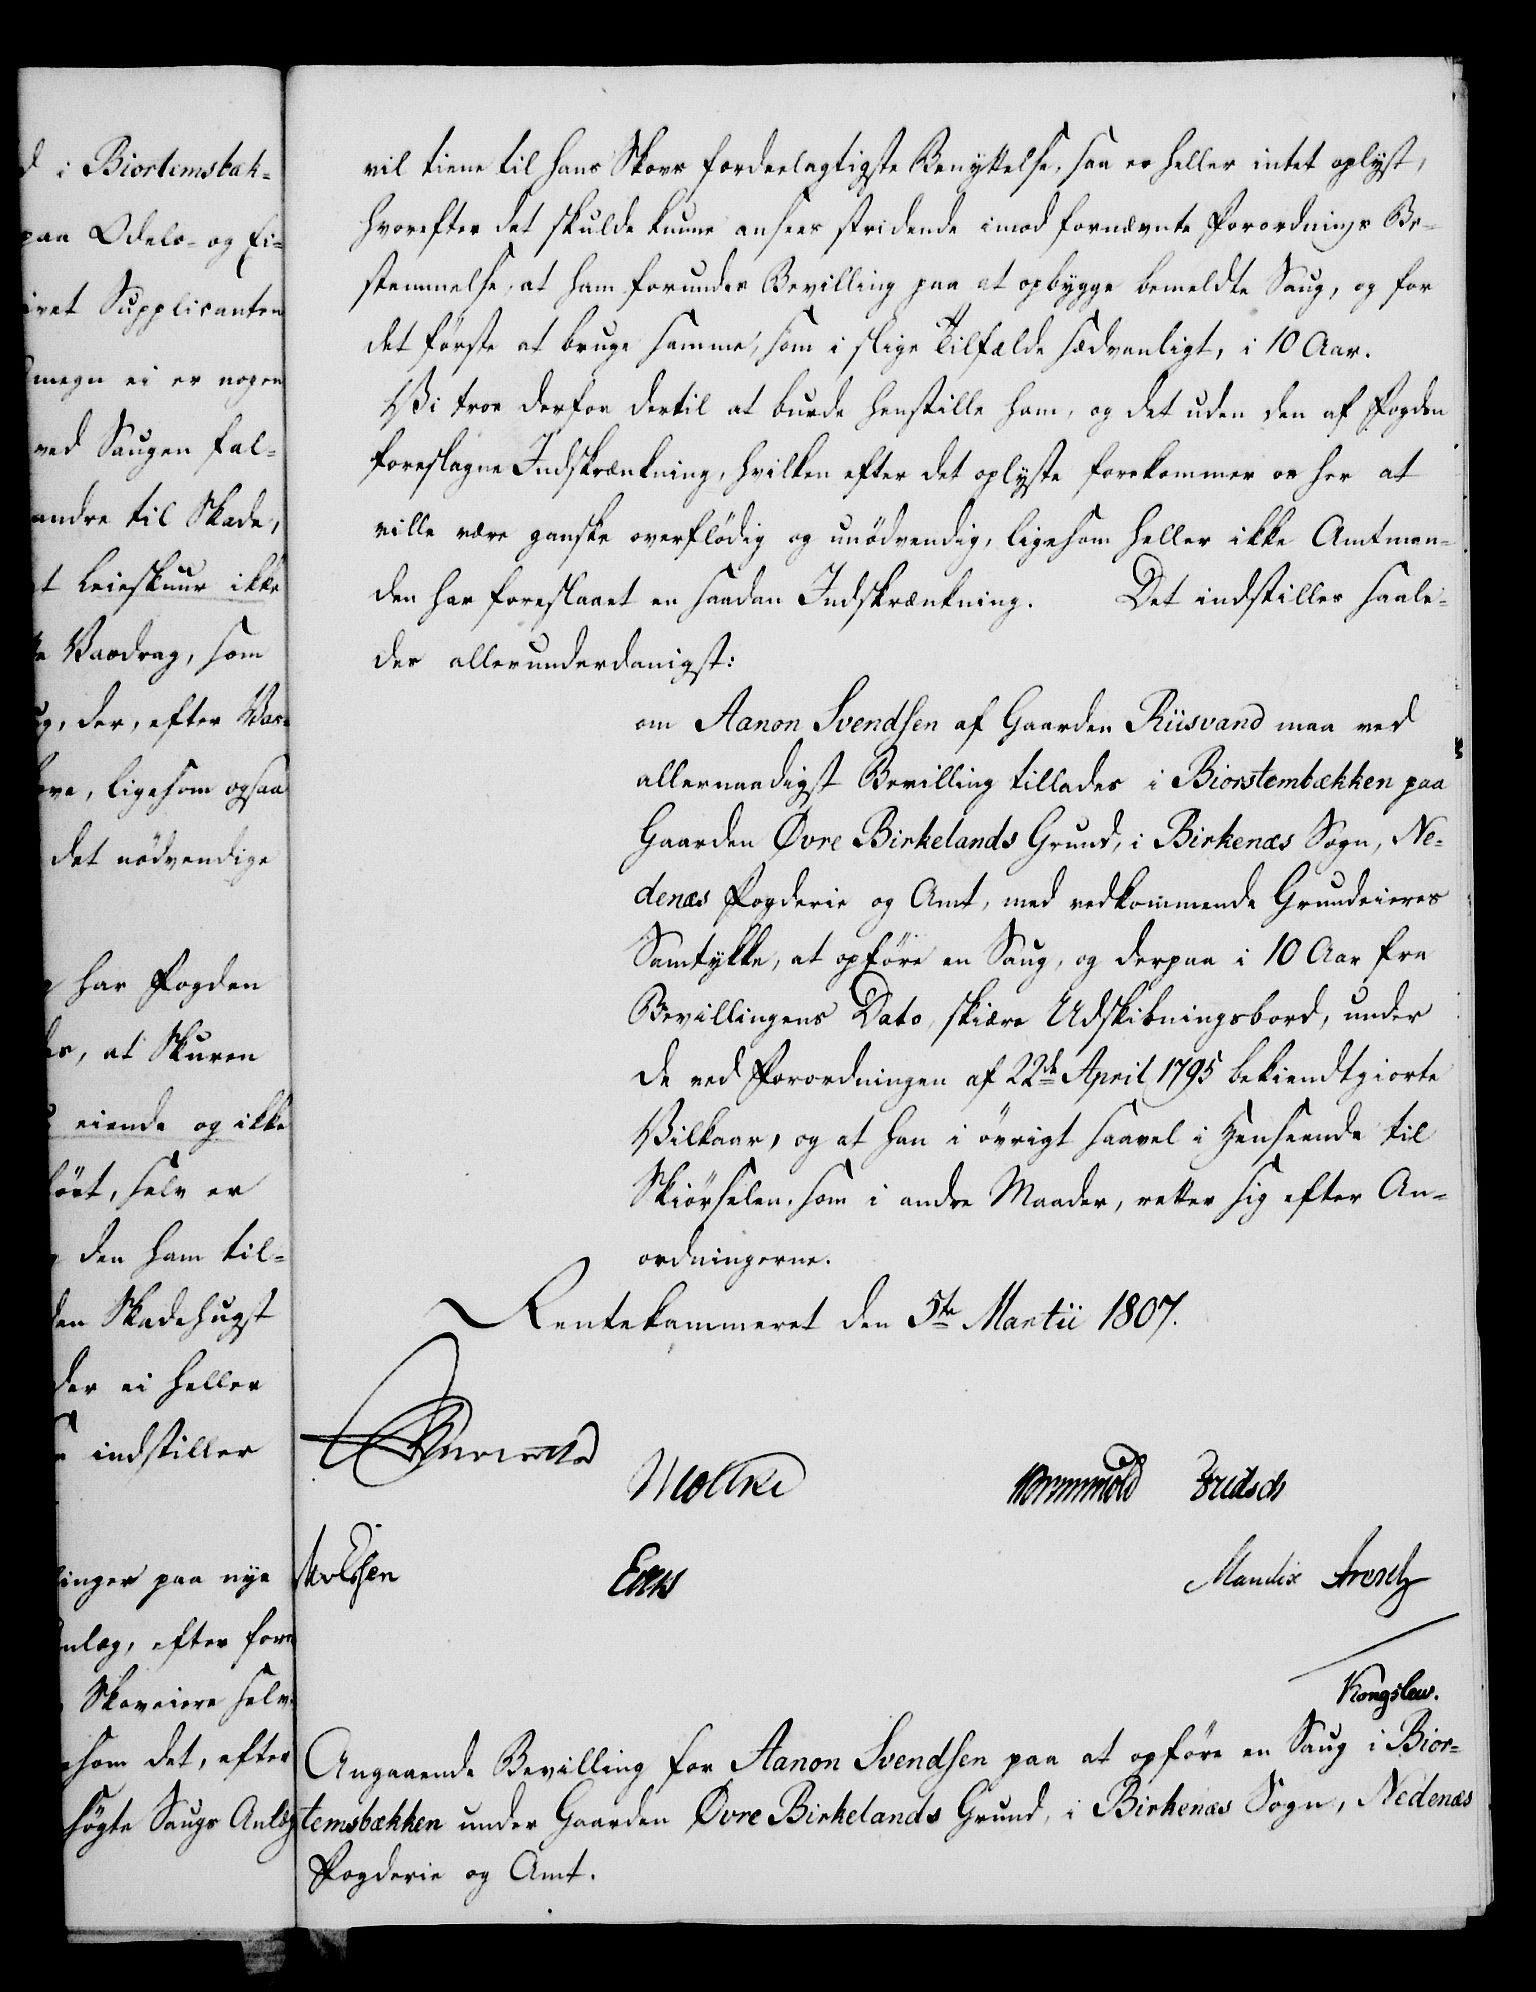 d i Biortemsbæk-
paa Odels- og Ei-
ivet Supplicanten
megn ei er nogen
ved Saugen fal-
andre til Skade,
t Leieskuur ikke
Vasdrag, som
g, der, efter Vas-
ove, ligesom ogsaa
det nödvendige
har Fogden
es, at Skuren
eiende og ikke
fört, selv er
den ham til-
den Skadehugst
der ei heller
indstiller
linger paa nye
nlæg, efter for-
Skoveiere selv
som det, efter
sögte Saugs Anlæg
vil tiene til hans Skovs fordeelagtigste Benyttelse, saa er heller intet oplyst,
hvorefter det skulde kunne ansees stridende imod fornævnte Forordnings Be-
stemmelse, at ham forundes Bevilling paa at opbygge bemeldte Saug, og for
det förste at bruge samme, som i slige Tilfælde sædvanligt, i 10 Aar.
Vi troe derfor dertil at burde henstille ham, og det uden den af Fogden
foreslagne Indskrænkning, hvilken efter det oplyste forekommer os her at
ville være ganske overflödig og unödvendig, ligesom heller ikke Amtman-
den har foreslaaet en saadan Indskrænkning. Det indstilles saale-
des allerunderdanigst:
om Aanon Svendsen af Gaarden Riisvand maa ved
allernaadigst Bevilling tillades i Biorstembækken paa
Gaarden Øvre Birkelands Grund, i Birkenæs Sogn, Ne-
denæs Fogderie og Amt, med vedkommende Grundeieres
Samtykke, at opföre en Saug, og derpaa i 10 Aar fra
Bevillingens Dato, skiære Udskibningsbord, under
de ved Forordningen af 22de April 1795 bekiendtgiorte
Vilkaar, og at han i övrigt saavel i Henseende til
Skiörselen, som i andre Maader, retter sig efter An-
ordningerne.
Rentekammeret den 5te Martii 1807.
Moltke Wormskiold Fridsch
Eeen Mandix Arentz
Kongslew.
Angaaende Bevilling for Aanon Svendsen paa at opföre en Saug i Bior-
temsbækken under Gaarden Øvre Birkelands Grund, i Birkenæs Sogn, Nedenæs
Fogderie og Amt.